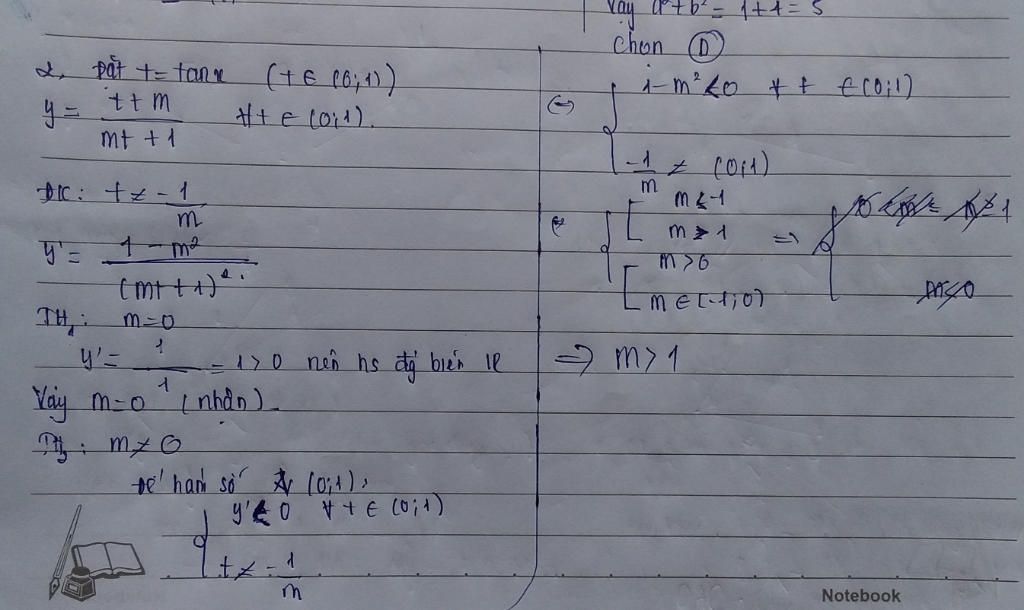 Vậy a² + b² = 1 + 1 = 5
Chọn Ⓓ
2, Đặt t = tanx (t ∈ (0;1))
y = (t + m)/(mt + 1) ∀t ∈ (0;1).
ĐK: t ≠ -1/m
y' = (1 - m²)/(mt + 1)².
TH₁: m = 0
y' = 1/1 = 1 > 0 nên hs đồng biến
Vậy m = 0 (nhận)
m ≠ 0
Để hàm số (0;1),
y' < 0 ∀t ∈ (0;1)
t ≠ -1/m
⇔ { 1 - m² < 0 ∀t ∈ (0;1)
-1/m ≠ (0;1)
⇔ { [ m < -1
m > 1 ⇒ {
m > 0
[ m ∈ [-1;0)
⇒ m > 1
Notebook